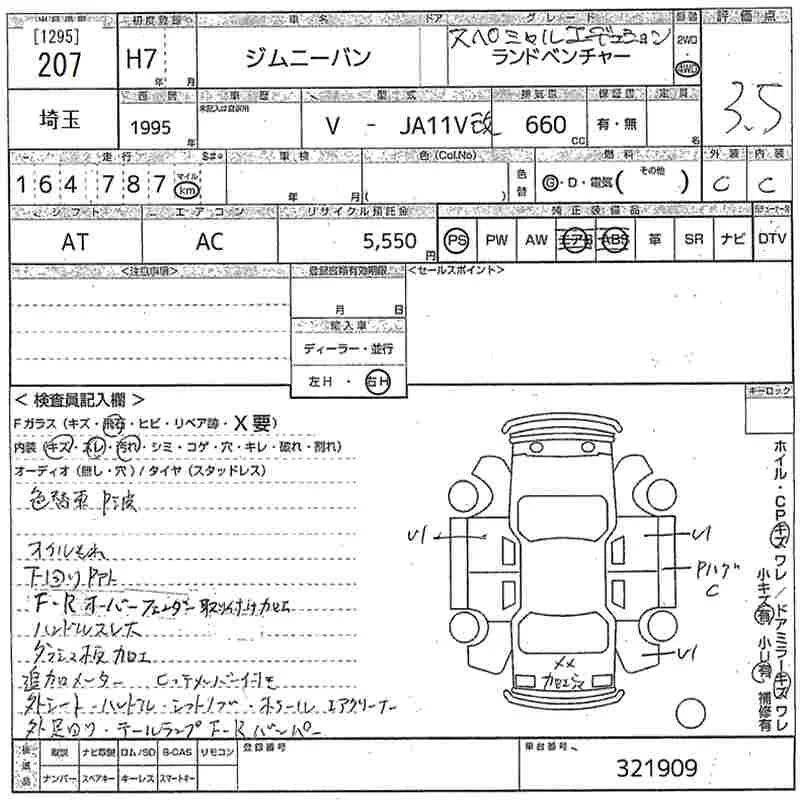 出品番号 初度登録 車名 ドア グレード 評価点
[1295]
207
H7 年 月
ジムニーバン
スペシャルエディション
ランドベンチャー
2WD
4WD
3.5
埼玉
車歴 型式 排気量 保証書 定員
1995 年
未記入は自家用
V - JA11V改
660 cc
有・無
名
走行 車検 色(Col.No) 燃料 外装 内装
164787 マイル km
年 月
色替
G・D・電気( その他 )
C C
シフト エアコン リサイクル預託金 純正装備品
AT AC 5,550円
PS PW AW エアB ABS 革 SR ナビ DTV
<注意事項> 登録書類有効期限 <セールスポイント>
月 日
輸入車
ディーラー・並行
左H ・ 右H
<検査員記入欄> キーロック
Fガラス(キズ・飛石・ヒビ・リペア跡・X要)
内装(キズ・スレ・汚れ・シミ・コゲ・穴・キレ・破れ・割れ)
オーディオ(無し・穴)/タイヤ(スタッドレス)
色替車
オイルもれ
F・Rオーバーフェンダー取り付け加工
ハンドルスレ大
ダッシュ板加工
追加メーター
外シート・ハンドル・シフトノブ・ホイール エアクリーナー
外足回り・テールランプ F・Rバンパー
U1 U1
C
U1
XX
ホイル・CPキズワレ/ドアミラーキズワレ
小キズ有 小U有 補修有
取説 ナビ取説 ロム/SD B-CAS リモコン
ナンバー スペアキー キーレス スマートキー
登録番号
車台番号
321909